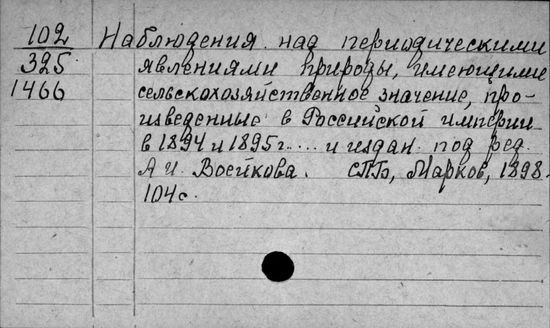 102 Наблюдения над периодическими
325 явлениями природы, имеющими
1466 сельскохозяйственное значение, про-
изведенные в Российской империи
в 1894 и 1895 г.... и издан. под ред.
А.И. Воейкова. СПБ, Марков, 1898.
104 с.